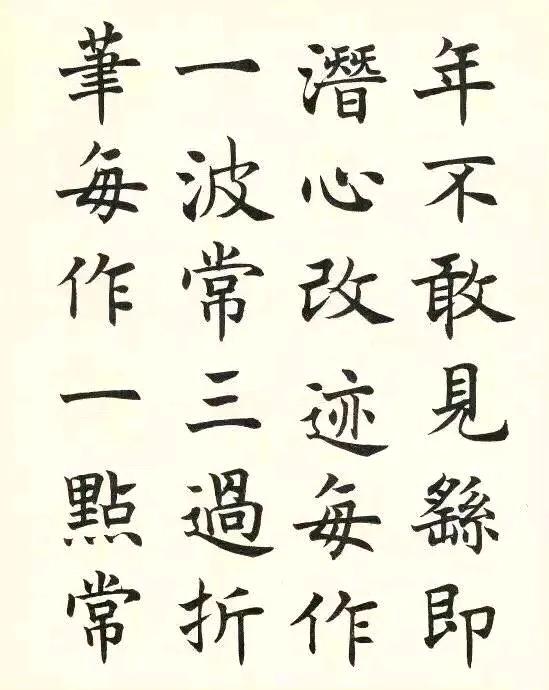 年不敢見繇即
潛心改迹每作
一波常三過折
筆每作一點常